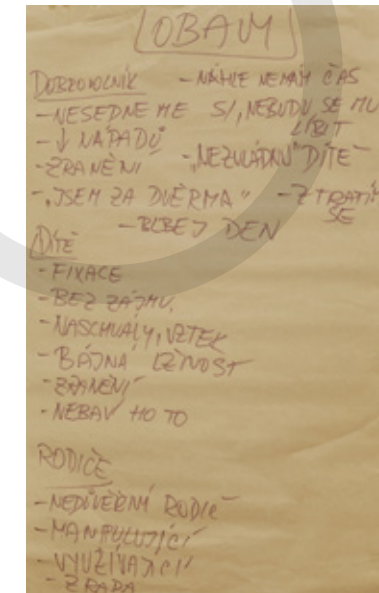 OBAVY
DOBROVOLNÍK - NÁHLE NEMÁM ČAS
- NESEDNEME SI, NEBUDU SE MU LÍBIT
- ↓ NÁPADŮ
- ZRANĚNÍ - „NEZVLÁDNU" DÍTĚ
- „JSEM ZA DVEŘMA" - ZTRATÍ SE
- BLBEJ DEN
DÍTĚ
- FIXACE
- BEZ ZÁJMU
- NASCHVÁLY, VZTEK
- BÁJNÁ
- ZRANĚNÍ
- NEBAV HO TO
RODIČE
- NEDŮVĚRNÍ RODIČ
- MANIPULUJÍCÍ
- VYUŽÍVAJÍCÍ
- ZRADA